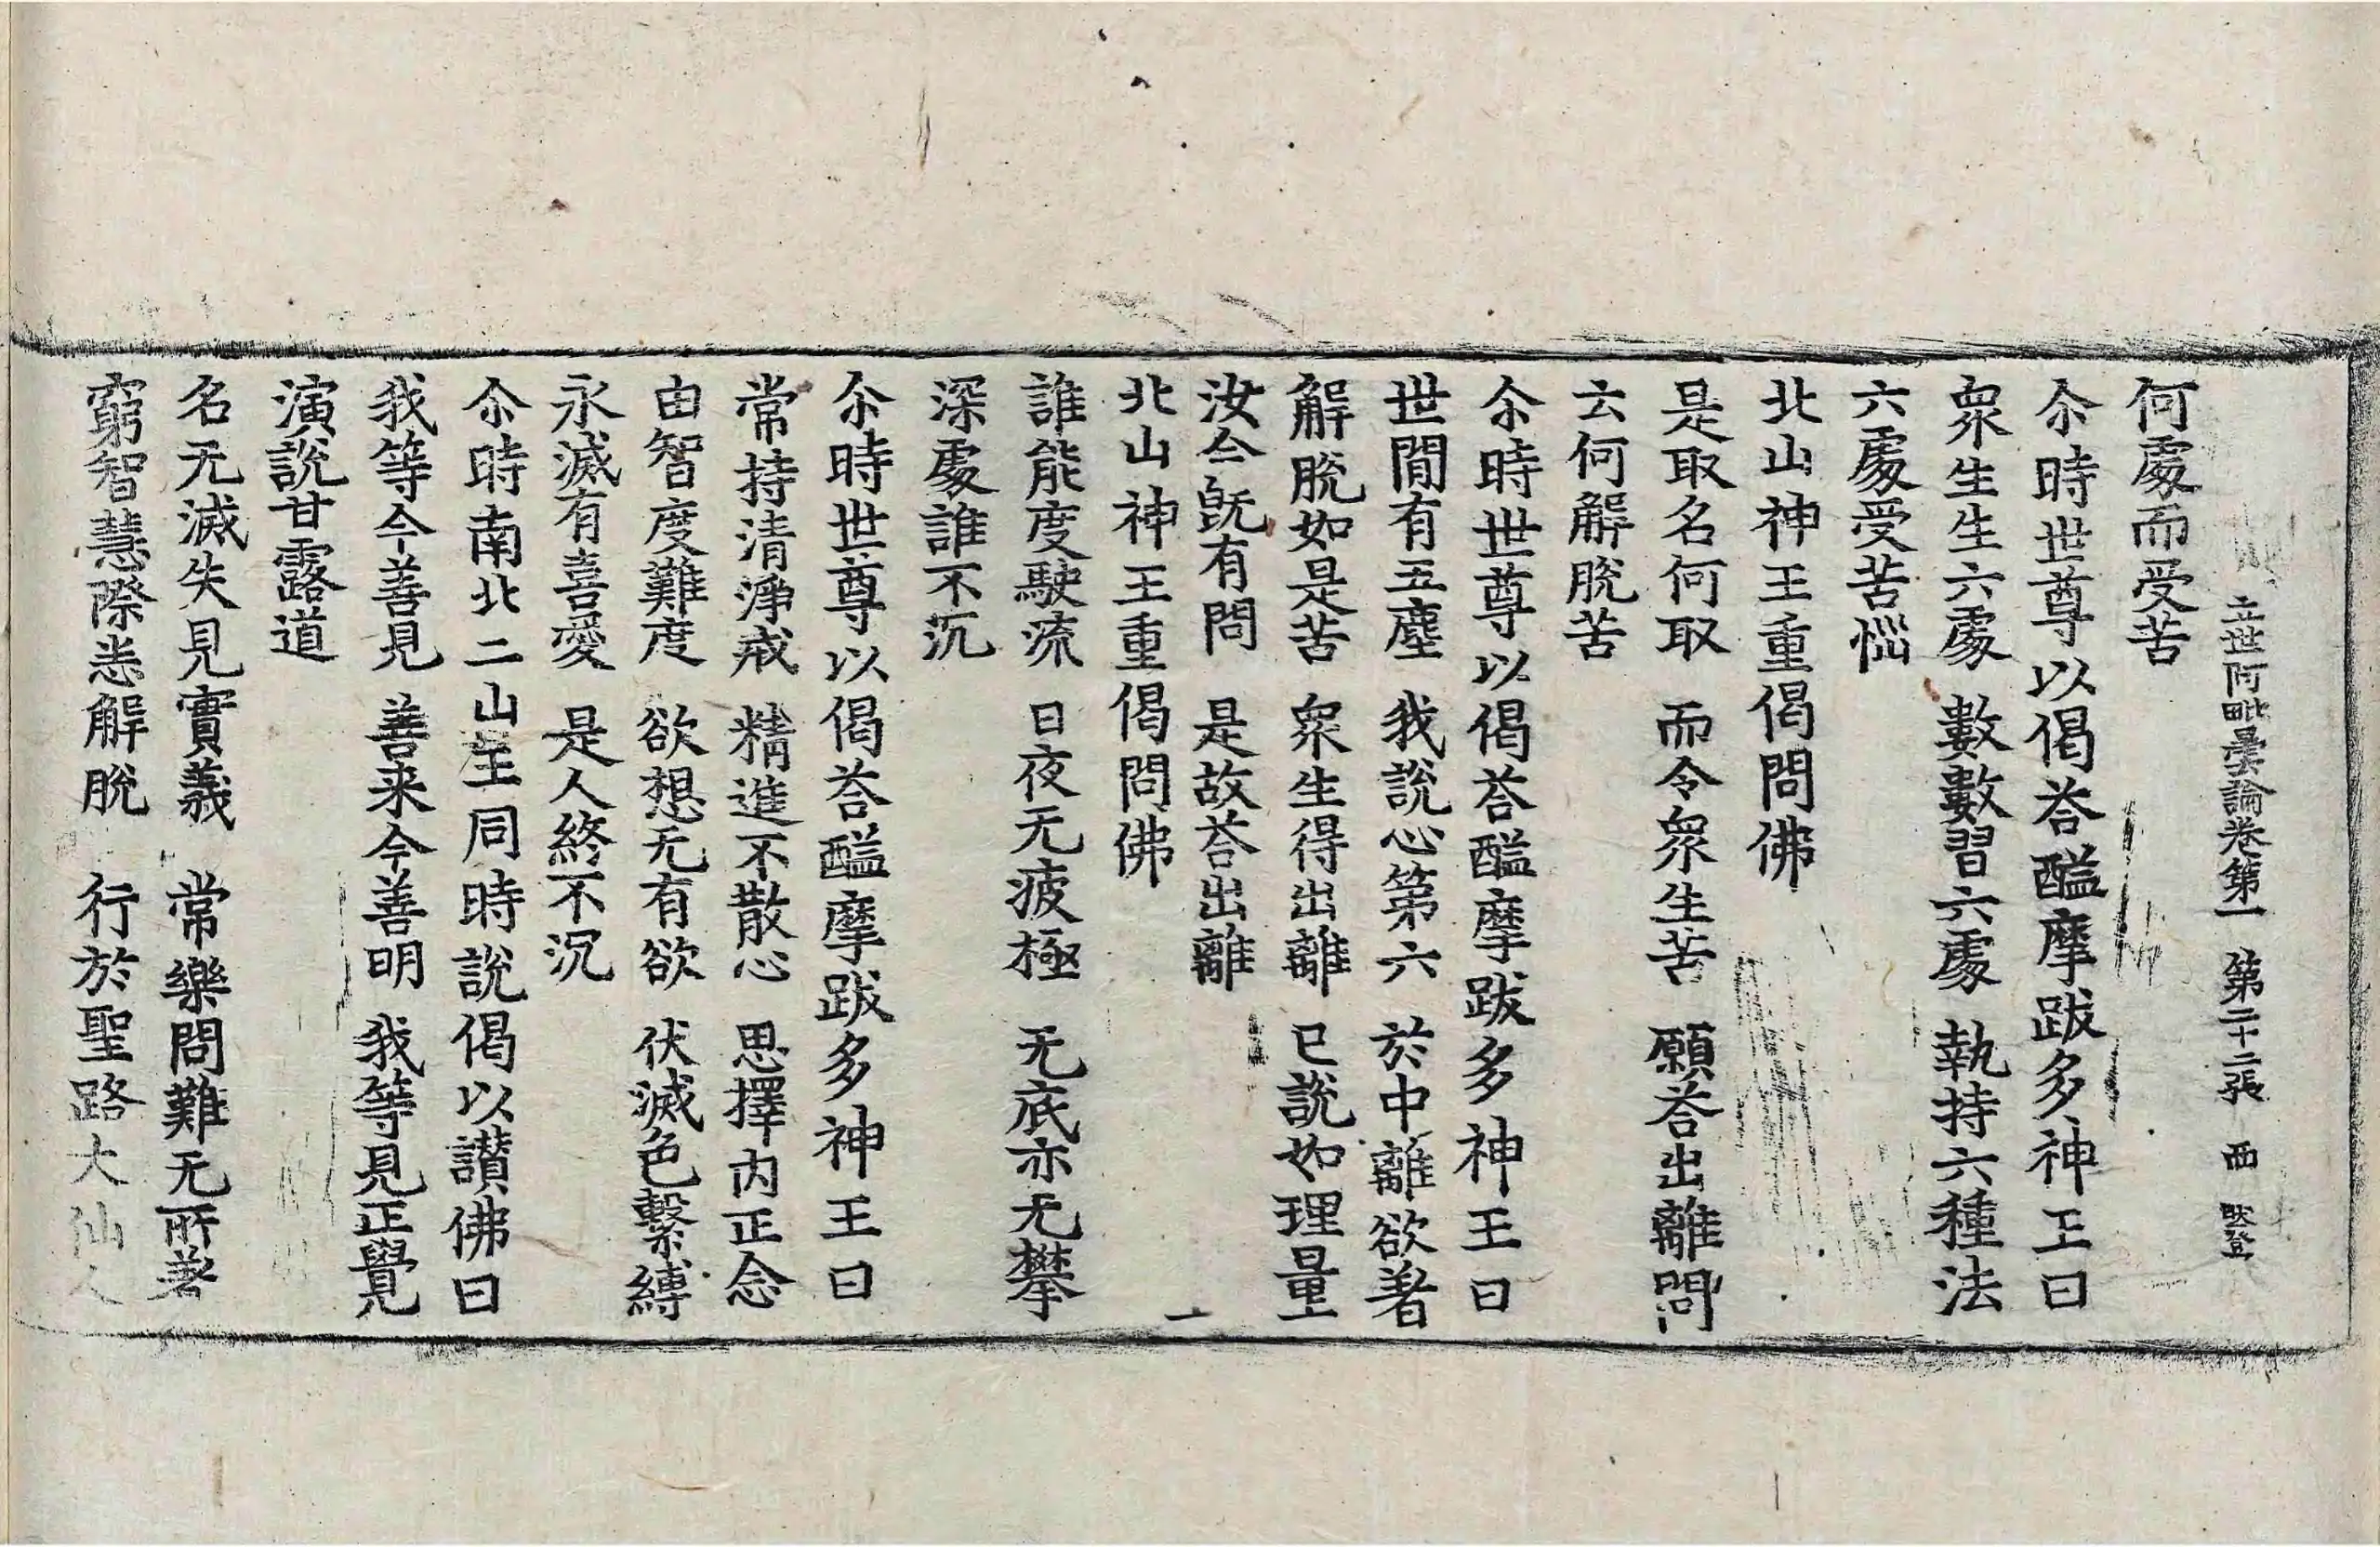 立世阿毗曇論卷第一　第二十二張　西
何處而受苦
尒時世尊以偈荅醯摩跋多神王曰
衆生生六處　數數習六處　執持六種法
六處受苦惱
北山神王重偈問佛
是取名何取　而令衆生苦　願荅出離問
云何解脫苦
尒時世尊以偈荅醯摩跋多神王曰
世間有五塵　我說心第六　於中離欲著
解脫如是苦　衆生得出離　已說如理量
汝今旣有問　是故荅出離
北山神王重偈問佛
誰能度駛流　日夜无疲極　无底亦无攀
深處誰不沉
尒時世尊以偈荅醯摩跋多神王曰
常持清淨戒　精進不散心　思擇內正念
由智度難度　欲想无有欲　伏滅色繫縛
永滅有喜愛　是人終不沉
尒時南北二山王同時說偈以讃佛曰
我等今善見　善来今善明　我等見正覺
演說甘露道
名无滅失見實義　常樂問難无所著
窮智慧際悉解脫　行於聖路大仙人